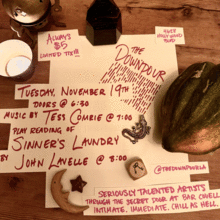 ALWAYS
$5
LIMITED TIX!!
HOLLYWOOD
BLVD
THE
DOWNPOUR
TUESDAY, NOVEMBER 19TH
DOORS @ 6:30
MUSIC BY TESS COMRIE @ 7:00
PLAY READING OF
SINNER'S LAUNDRY
BY JOHN LAVELLE @ 8:00
SERIOUSLY TALENTED ARTISTS
THROUGH THE SECRET DOOR AT BAR COVELL
INTIMATE, IMMEDIATE, CHILL AS HELL.